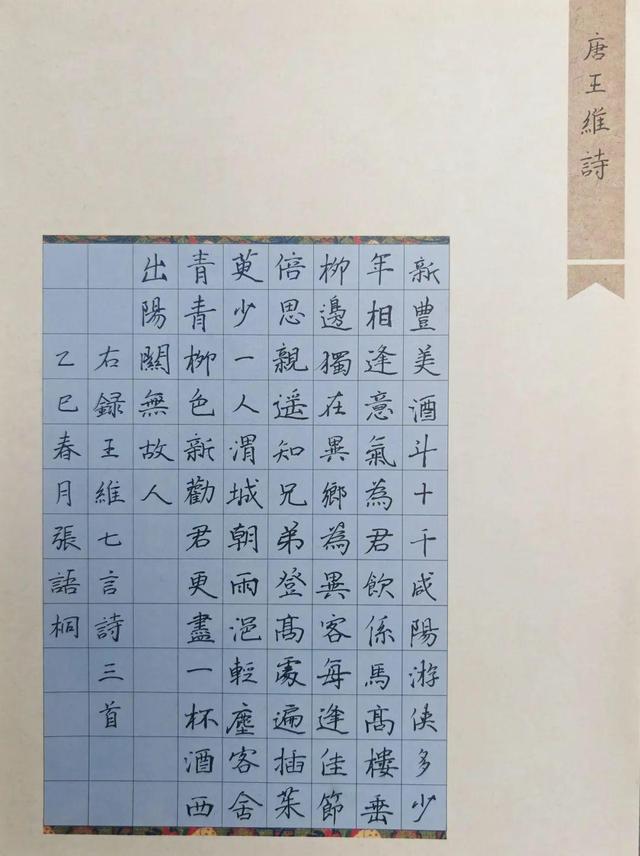 唐王維詩
新豊美酒斗十千咸陽游侠多少
年相逢意氣為君飲係馬髙樓垂
柳邊獨在異鄉為異客每逢佳節
倍思親遥知兄弟登髙處遍插茱
萸少一人渭城朝雨浥輕塵客舍
青青柳色新勸君更盡一杯酒西
出陽關無故人
右録王維七言詩三首
乙巳春月張語桐